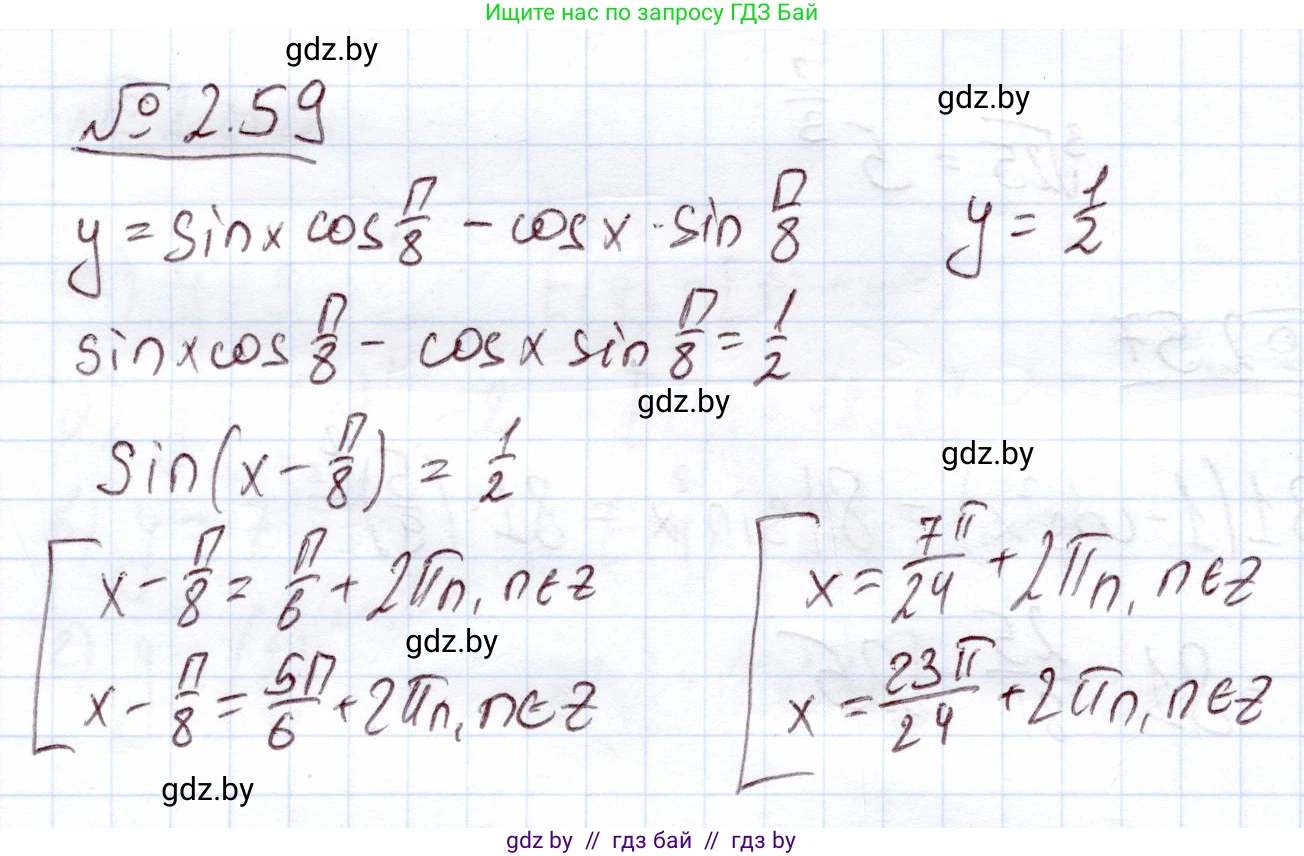 Ищите нас по запросу ГДЗ Бай
gdz.by
gdz.by
№ 2.59
y = sin x cos π/8 - cos x · sin π/8    y = 1/2
sin x cos π/8 - cos x sin π/8 = 1/2
gdz.by
gdz.by
sin(x - π/8) = 1/2
x - π/8 = π/6 + 2πn, n∈Z    x = 7π/24 + 2πn, n∈Z
gdz.by
x - π/8 = 5π/6 + 2πn, n∈Z    x = 23π/24 + 2πn, n∈Z
gdz.by
gdz by // гдз бай // гдз by